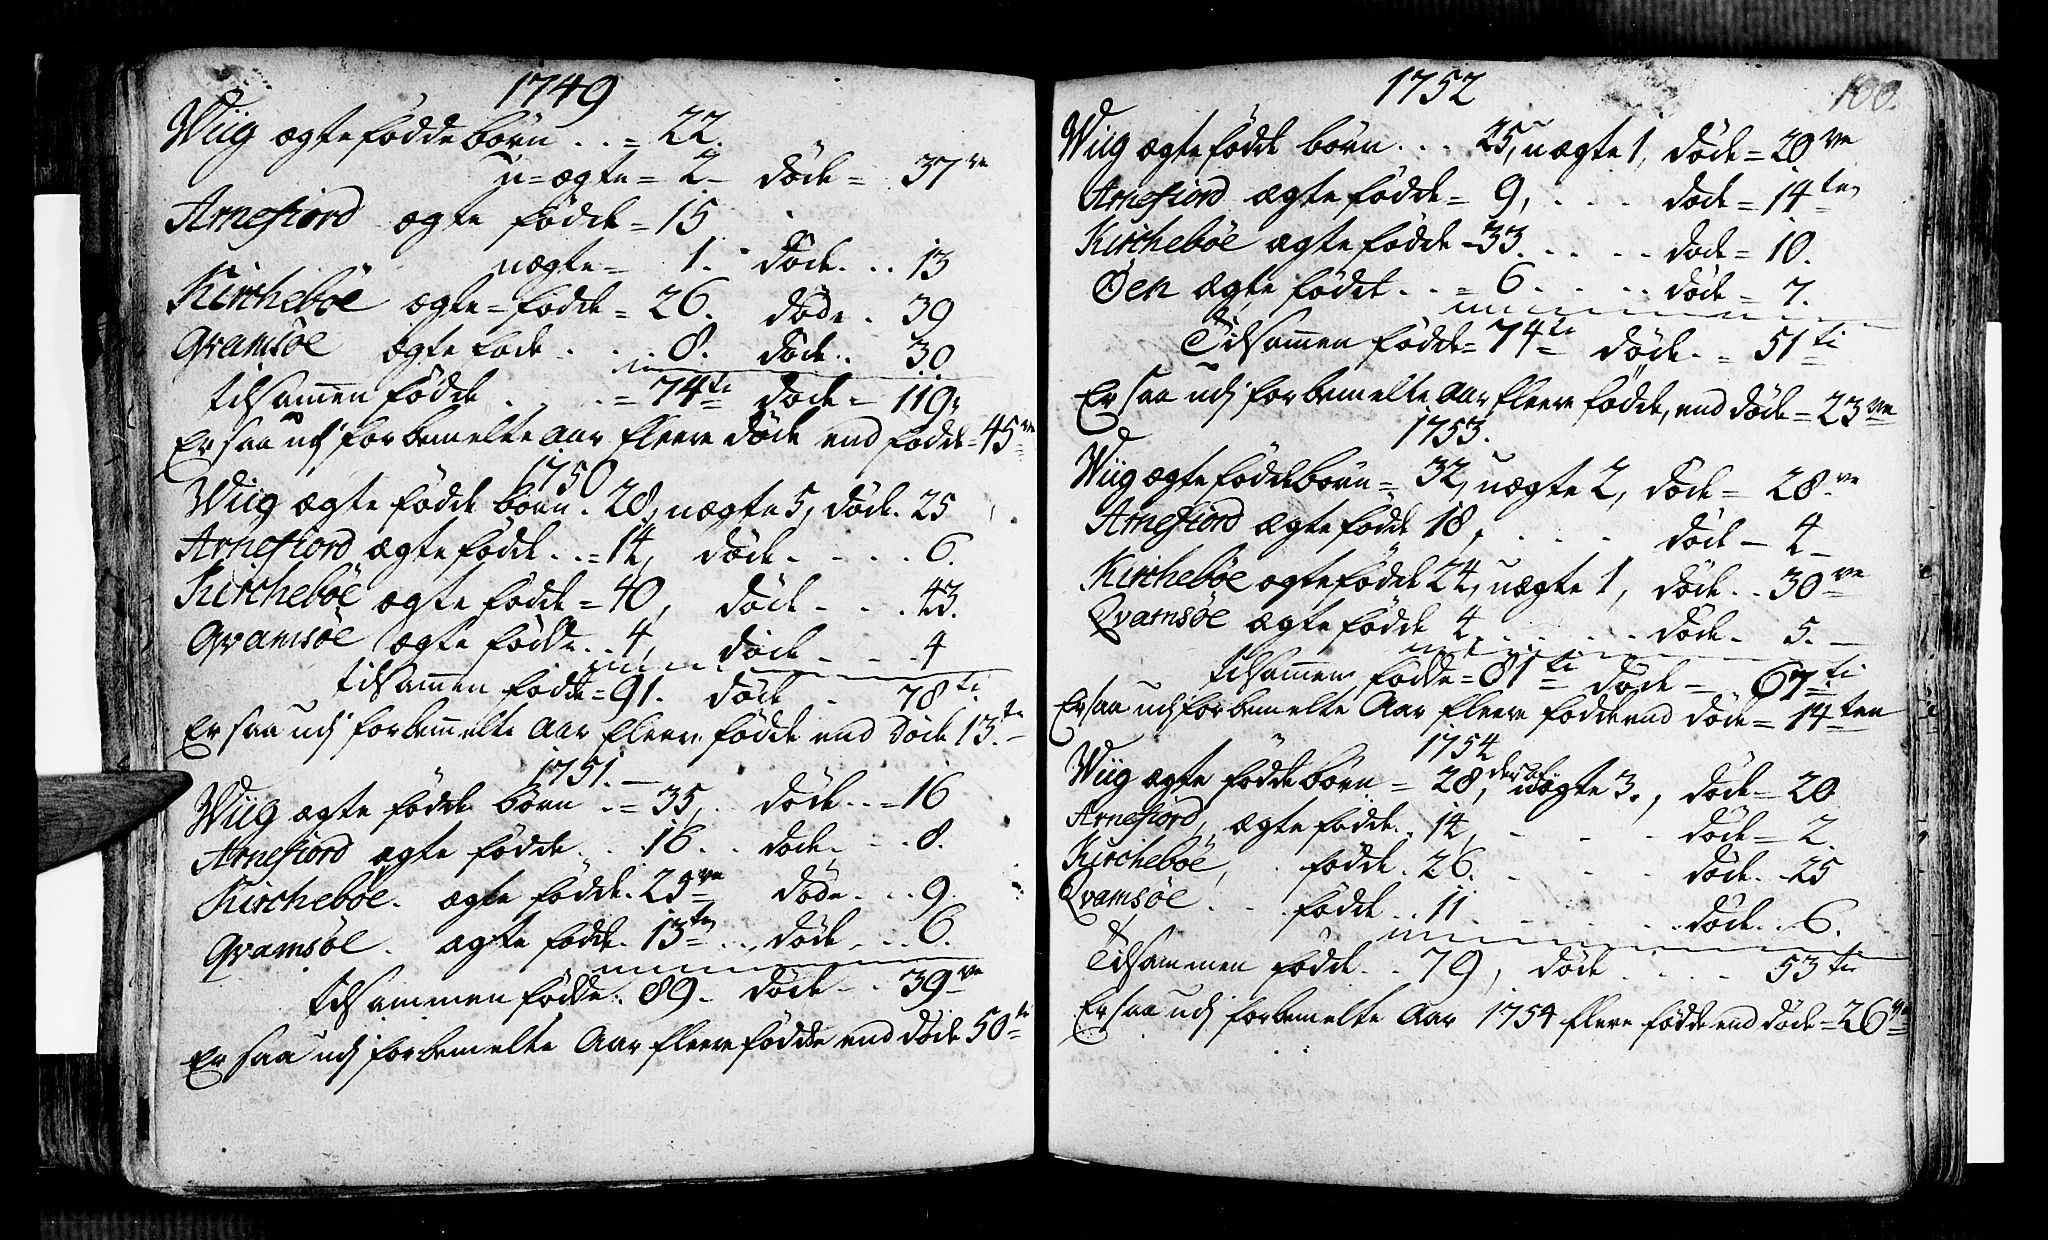 1749
Wiig ægte fødde børn . . = 22.
u=ægte = 2 – døde = 37ve
Arnefiord ægte fødde = 15
uægte = 1. døde . . 13
Kirchebøe ægte = fødde = 26. døde . 39
Qvamsøe ægte føde . . . 8. døde . . 30
tilsam̄en fødde . . . = 74ti døde – 119.
Er saa udj forbemelte Aar fleere døde end fødde = 45ve
1750
Wiig ægte fødde børn . 28, uægte 5, døde . 25
Arnefiord ægte fødde . . = 14, døde . . . . 6.
Kirchebøe ægte fødde = 40, døde . . . 43.
Qvamsøe ægte fødde . . 4, døde . . . 4
tilsam̄en fødde = 91. døde . 78ti.
Er saa udj forbem̄elte Aar fleere fødde end døde 13.ten
1751. –
Wiig ægte fødde børn . . = 35, . døde . . = 16
Arnefiord ægte fødde . . 16. . døde . . . 8.
Kirchebøe . ægte fødde . 25ve døde . . . 9.
Qvamsøe . ægte fødde . 13ten . . døde . . . 6.
tilsammen fødde . 89. døde . . 39ve
Er saa udj forbemelte Aar fleere fødde end døde 50ti
100.
1752
Wiig ægte fødde børn . . . 25, uægte 1, døde = 20ve
Arnefiord ægte fødde = 9, . . . døde = 14ten
Kirchebøe ægte fødde = 33. . . . . døde = 10.
Øen ægte fødde . . = 6. . . . døde = 7.
Tilsam̄en fødde = 74ti døde . = 51ti
Er saa udj forbemelte Aar fleere fødde, end døde = 23ve
1753.
Wiig ægte fødde børn = 32, uægte 2, døde = 28.ve
Arnefiord ægte fødde 18, . . . . døde – 4 –
Kirchebøe ægte fødde 24, uægte 1, døde . . 30ve
Qvamsøe ægte fødde 4, . . . . . døde – 5. –
tilsammen fødde = 81ti døde – 67ti
Er saa udj forbemelte Aar fleere fødde end døde = 14ten
1754
Wiig ægte fødde børn = 28, der af uægte 3., døde = 20
Arnefiord, ægte fødde . . 14, . . . døde = 2.
Kirchebøe, . fødde . 26. . . . døde . . 25
Qvamsøe . . . fødde . . 11 . . . . døde . . 6.
Tilsammen fødde . . 79, døde . . . . 53ti
Er saa udj forbemelte Aar 1754 flere fødde end døde = 26ve